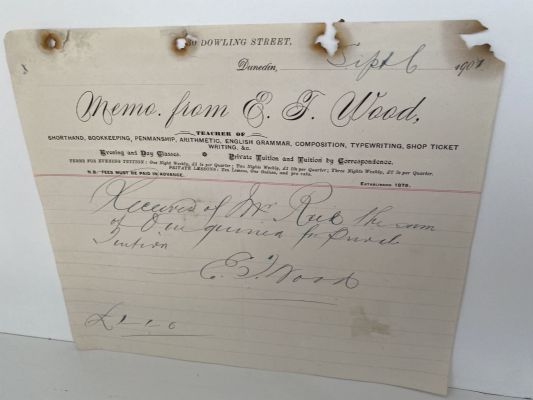 30 DOWLING STREET,
Dunedin, Sept 6 1901
Memo. from E. T. Wood,
TEACHER OF
SHORTHAND, BOOKKEEPING, PENMANSHIP, ARITHMETIC, ENGLISH GRAMMAR, COMPOSITION, TYPEWRITING, SHOP TICKET
WRITING, &c.
Evening and Day Classes. Private Tuition and Tuition by Correspondence.
TERMS FOR EVENING TUITION: One Night Weekly, £1 1s per Quarter; Two Nights Weekly, £1 10s per Quarter; Three Nights Weekly, £2 2s per Quarter.
PRIVATE LESSONS: Ten Lessons, One Guinea, and pro rata.
N.B.—FEES MUST BE PAID IN ADVANCE. ESTABLISHED 1878.
Received of Mr the sum
of One guinea for Private
Tuition
E. T. Wood
£1 - 1 - 0